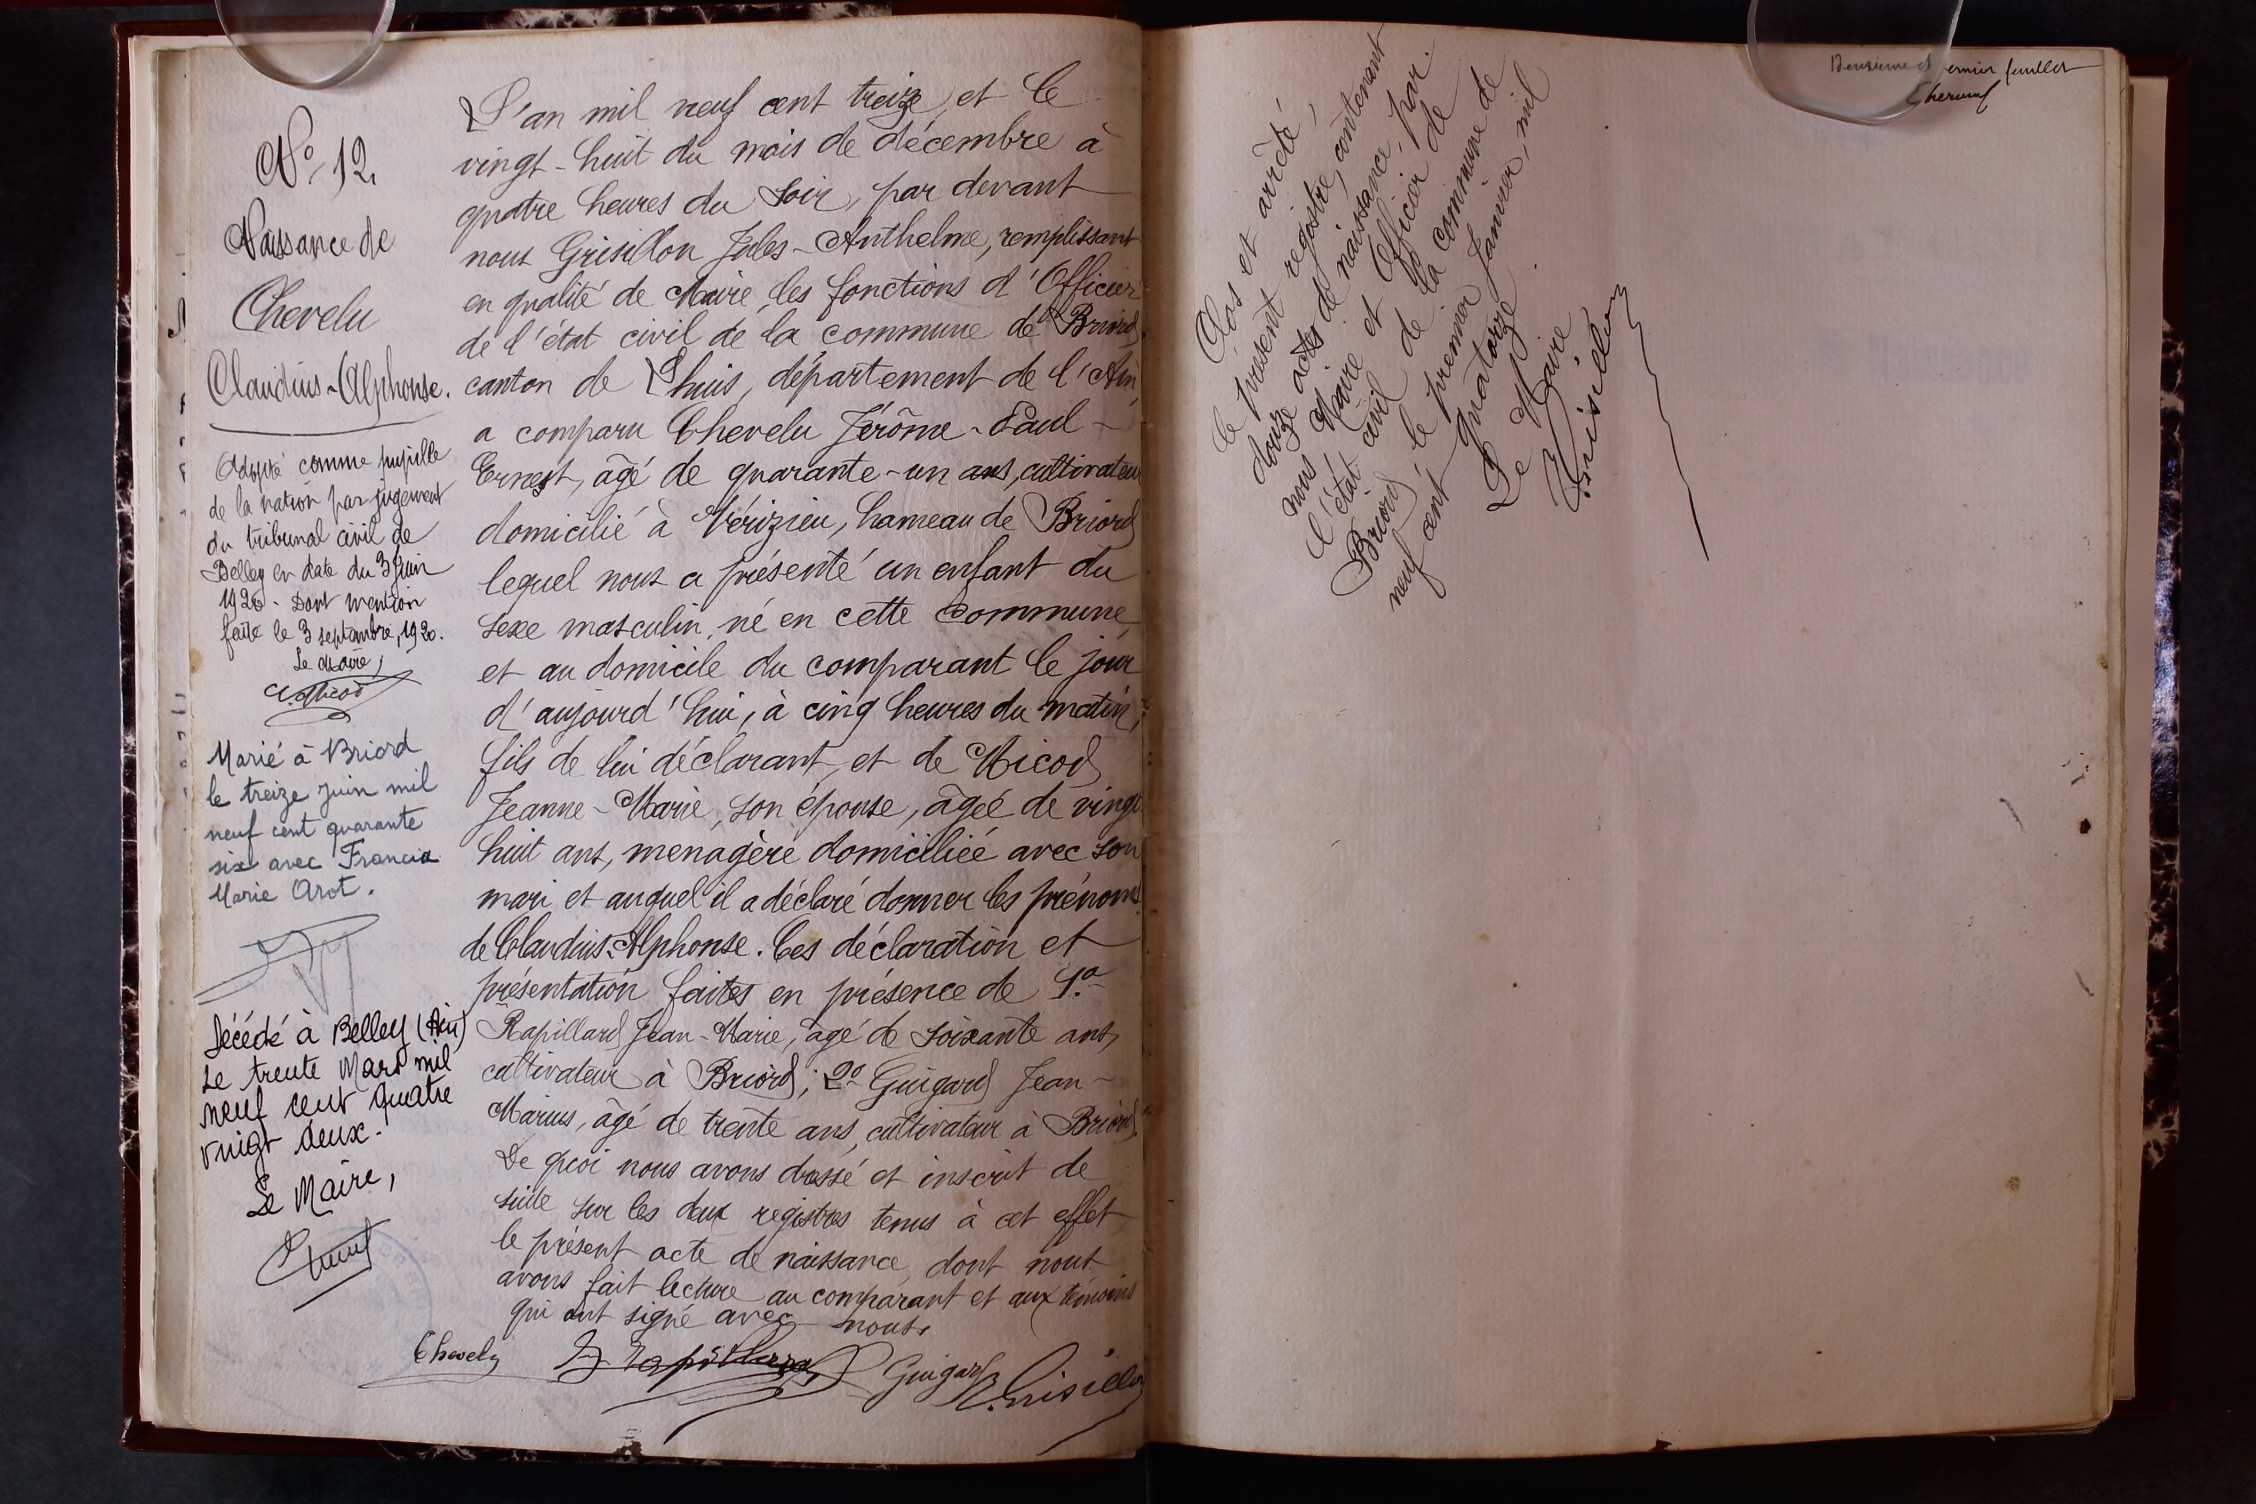 No 12.
Naissance de
Chevelu
Claudius-Alphonse.
Adopté comme pupille
de la nation par jugement
du tribunal civil de
Belley en date du 3 juin
1920 - Dont mention
faite le 3 septembre, 1920.
Le Maire,
Marié à Briord
le treize juin mil
neuf cent quarante
six avec Francia
Marie Arot.
Décédé à Belley (Ain)
Le trente Mars mil
neuf cent quatre
vingt deux.
Le Maire,
L'an mil neuf cent treize, et le
vingt-huit du mois de décembre à
quatre heures du soir, par devant
nous Grisillon Jules-Anthelme, remplissant
en qualité de Maire les fonctions d'Officier
de l'état civil de la commune de Briord,
canton de Lhuis, département de l'Ain,
a comparu Chevelu Jérôme-Paul-
Ernest, âgé de quarante-un ans, cultivateur
domicilié à Vérizieu, hameau de Briord
lequel nous a présenté un enfant du
sexe masculin, né en cette commune,
et au domicile du comparant le jour
d'aujourd'hui, à cinq heures du matin,
fils de lui déclarant, et de Micod
Jeanne-Marie, son épouse, âgée de vingt
huit ans, menagère domiciliée avec son
mari et auquel il a déclaré donner les prénoms
de Claudius-Alphonse. Ces déclaration et
présentation faites en présence de 1o
Rapillard Jean-Marie, âgé de soixante ans,
cultivateur à Briord; 2o Guigard Jean-
Marius, âgé de trente ans, cultivateur à Briord,
De quoi nous avons dressé et inscrit de
suite sur les deux registres tenus à cet effet
le présent acte de naissance, dont nous
avons fait lecture au comparant et aux témoins
qui ont signé avec nous.
Chevelu Rapillard Guigard Grisillon
Clos et arrêté,
le présent registre, contenant
douze actes de naissance, par
nous Maire et Officier de
l'état civil de la commune de
Briord le premier Janvier, mil
neuf cent quatorze
Le Maire
Grisillon
Deuxième et dernier feuillet